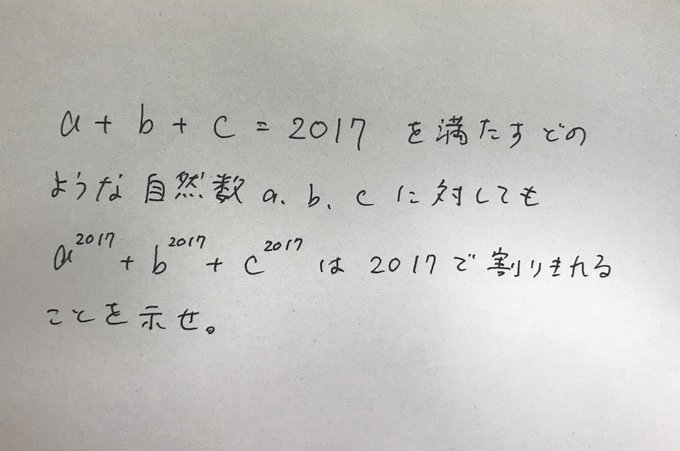 a + b + c = 2017 を満たすどの
ような自然数 a、b、c に対しても
a²⁰¹⁷ + b²⁰¹⁷ + c²⁰¹⁷ は 2017で割りきれる
ことを示せ。